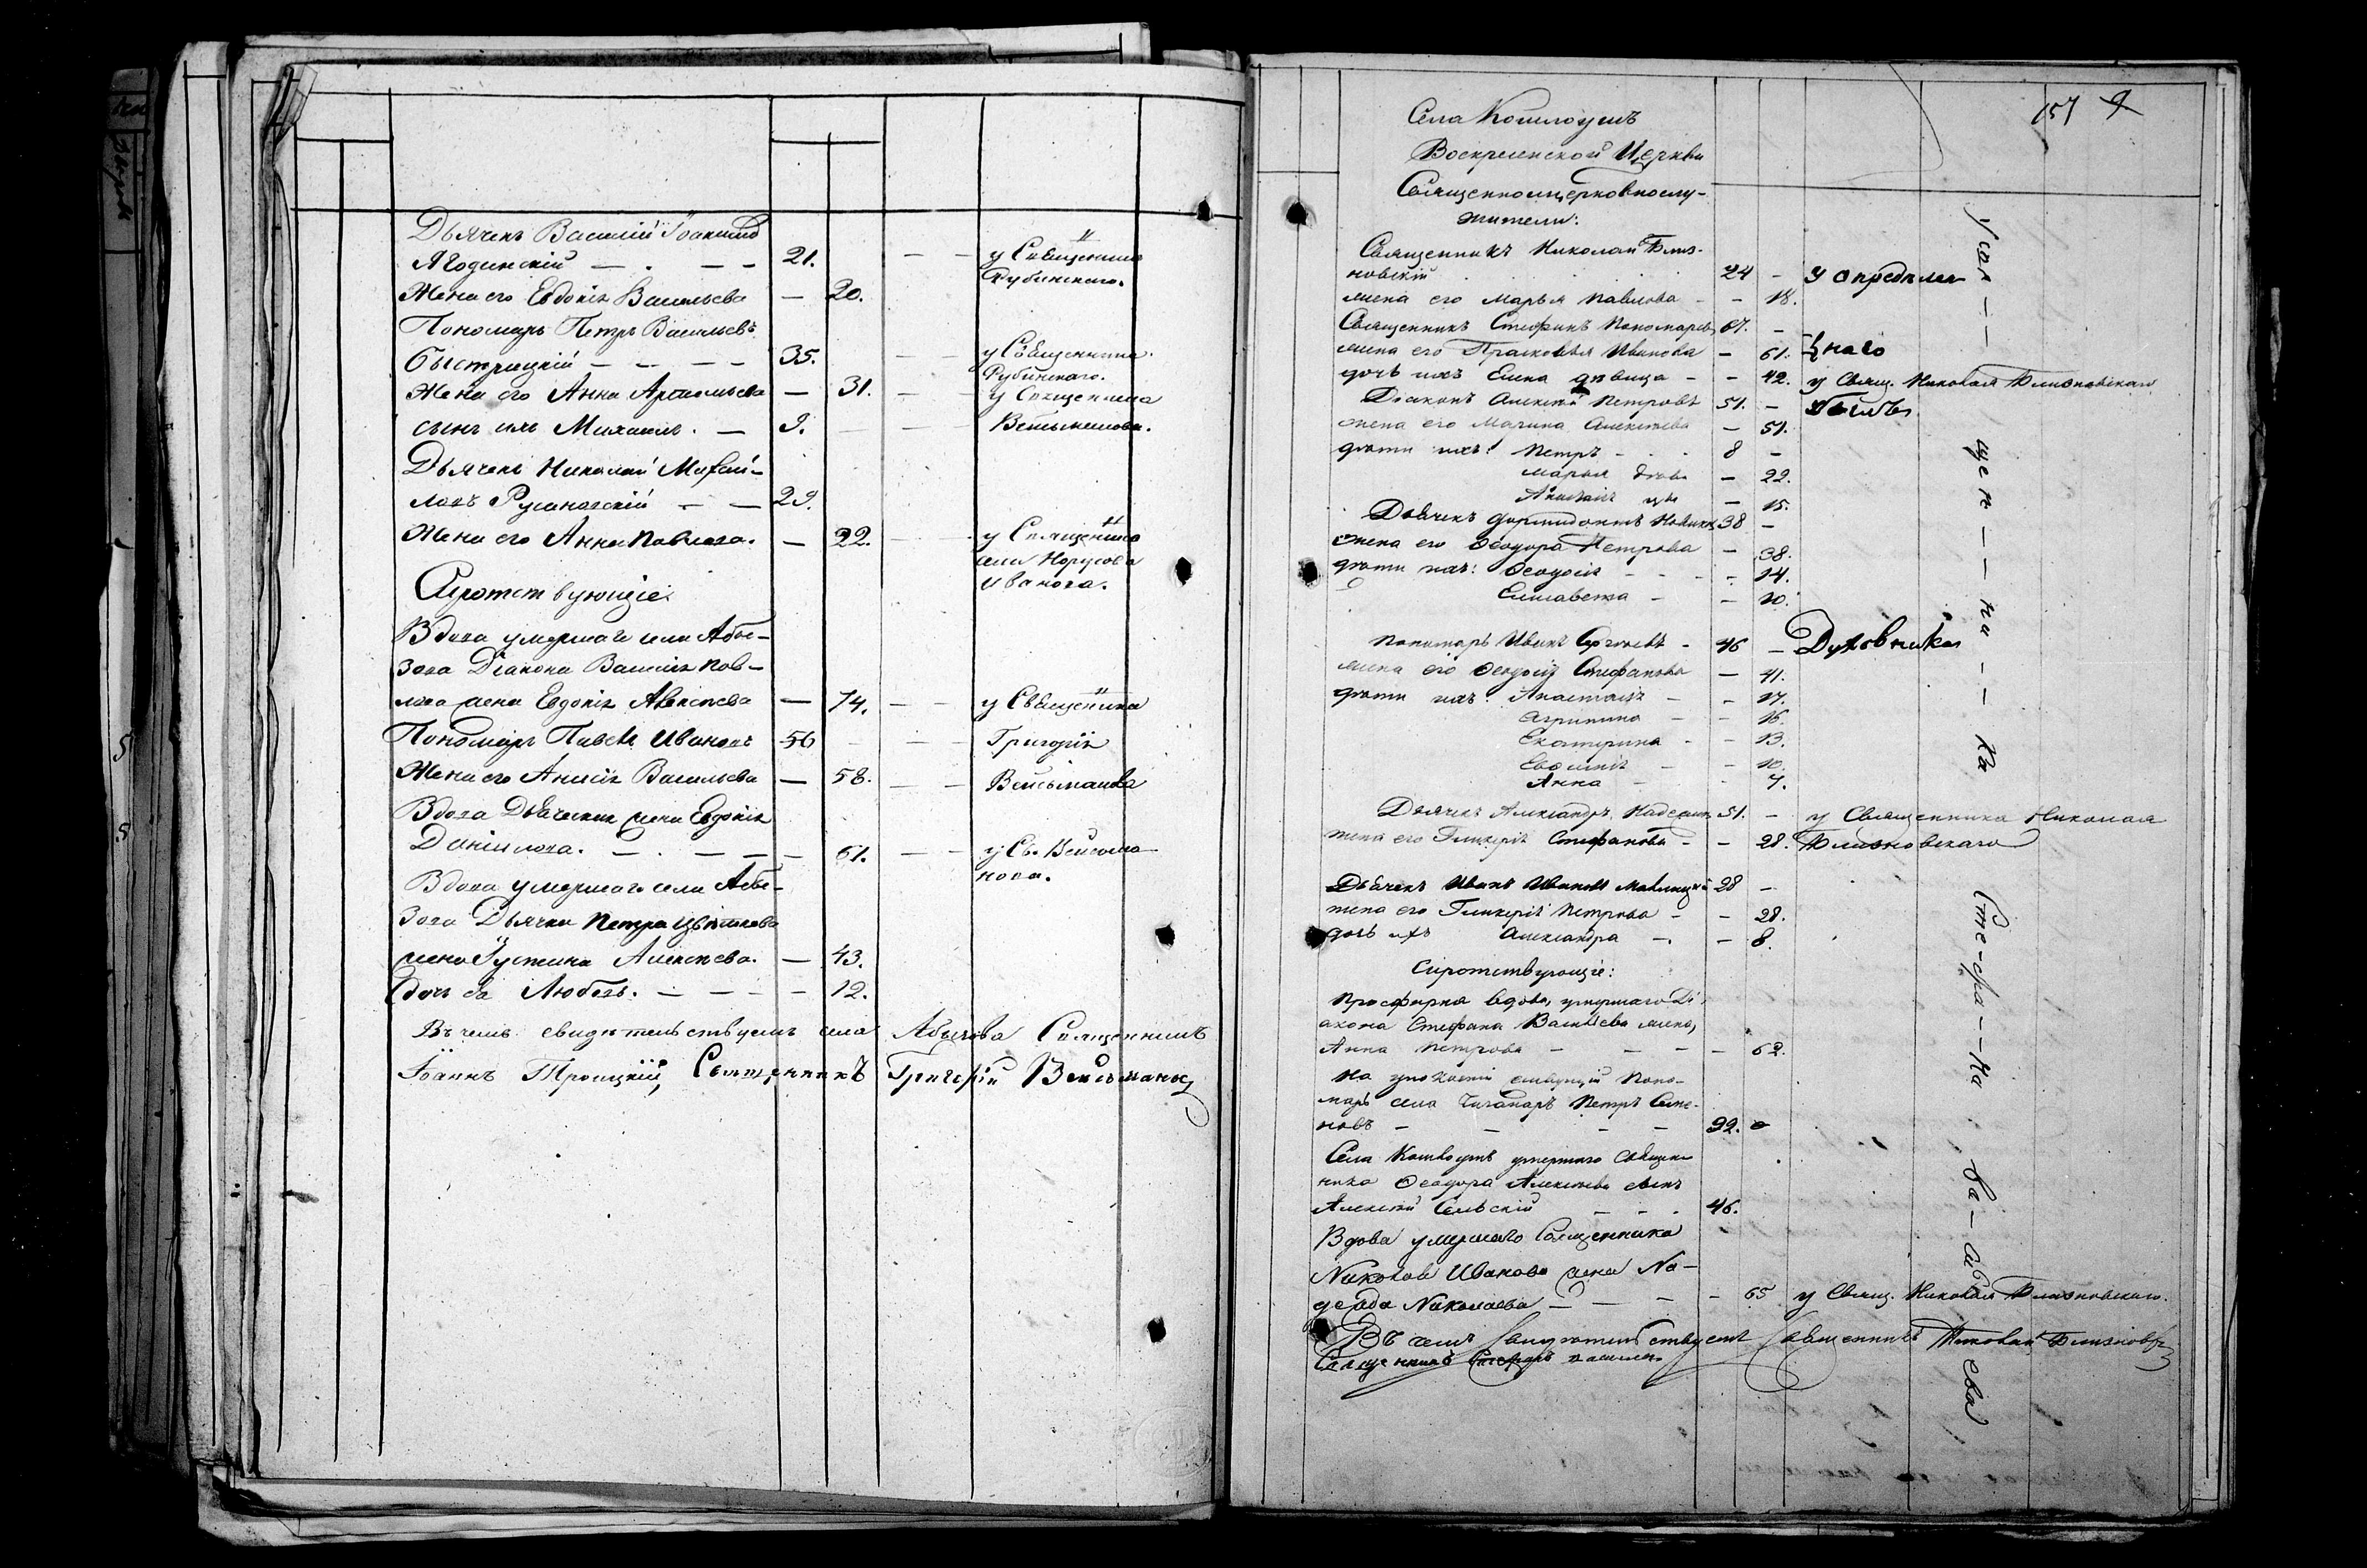 Дьячекъ Василій Іоакимовъ
Ягодинскій — . — — 21. — — у Священника
Рубинскаго.
Жена его Евдокія Васильева — 20.
Пономарь Петръ Васильевъ
Быстрицкій — — — — 35. — — у Священника
Рубинскаго.
Жена его Анна — 31. — — у Священника
сынъ ихъ Михаилъ. — 9. — —
Дьячекъ Николай Михаи-
ловъ — — 29.
Жена его Анна Павлова. — 22. — — у Священника
села
Иванова.
Сиротствующіе:
Вдова умершаго села Абы-
зова Діакона Василія Пав-
лова жена Евдокія Алексѣева — 74. — — у Священника
Пономарь Павелъ Ивановъ 56 — — — Григорія
Жена его Анисія Васильева — 58. — — Вейсманова
Вдова Дьяческая жена Евдокія
Даніилова. — . — — — 61. — — у Св. Вейсма-
нова.
Вдова умершаго села Абы-
зова Дьячка Петра Цвѣткова
жена Іустина Алексѣева. — 43.
дочь ея Любовь. — — — — 12.
Въ чемъ свидѣтельствуемъ села Абызова Священникъ
Іоаннъ Троицкій, Священникъ Григорій Вейсмановъ
157
Села Кошлоушъ
Воскресенской Церкви
Священноцерковнослу-
жители:
Священникъ Николай Близ-
новскій 24 - у опредѣлен
жена его Марья Павлова - - 18.
Священникъ Стефанъ Пономаревъ 67. -
жена его Прасковья Иванова - 61. наго
дочь ихъ Елена дѣвица - - 42. у Свящ. Николая Близновскаго
Діаконъ Алексѣй Петровъ 51. -
жена его Марина Алексѣева - 51.
дѣти ихъ: Петръ - . 8 -
Марья дѣви - 22.
Анастасія цы - 15.
Дьячекъ 38 -
жена его Ѳеодора Петрова - 38.
дѣти ихъ: Ѳеодосія - - - 14.
Елисавета - - 10.
Пономарь Иванъ Сергѣевъ - 46 - Духовника
жена его Ѳеодосія Стефанова - 41.
дѣти ихъ: Анастасія - - 17.
Агрипина - - 16.
Екатерина - - 13.
Евѳимія - - 10.
Анна - - 7.
Дьячекъ Александръ 51. - у Священника Николая
жена его Гликерія Стефанова - - 28. Близновскаго
Дьячекъ Иванъ Ивановъ 28 -
жена его Гликерія Петрова - - 28.
дочь ихъ Александра - . - 8.
Сиротствующіе:
Просфирня вдова, умершаго Ді-
акона Стефана Васильева жена,
Анна Петрова - - - - 62.
На пропитаніи Поно-
марь села Петръ Семе-
новъ - - - - 92.
Села Кошлоушъ умершаго Священ-
ника Ѳеодора Алексѣева сынъ
Алексѣй Сельскій - - . 46.
Вдова умершаго Священника
Николая Иванова жена На-
дежда Николаева - — - - 65 у Свящ. Николая Близновскаго.
Въ чемъ свидѣтельствуемъ Священникъ Николай Близновскій
Священникъ Стефанъ